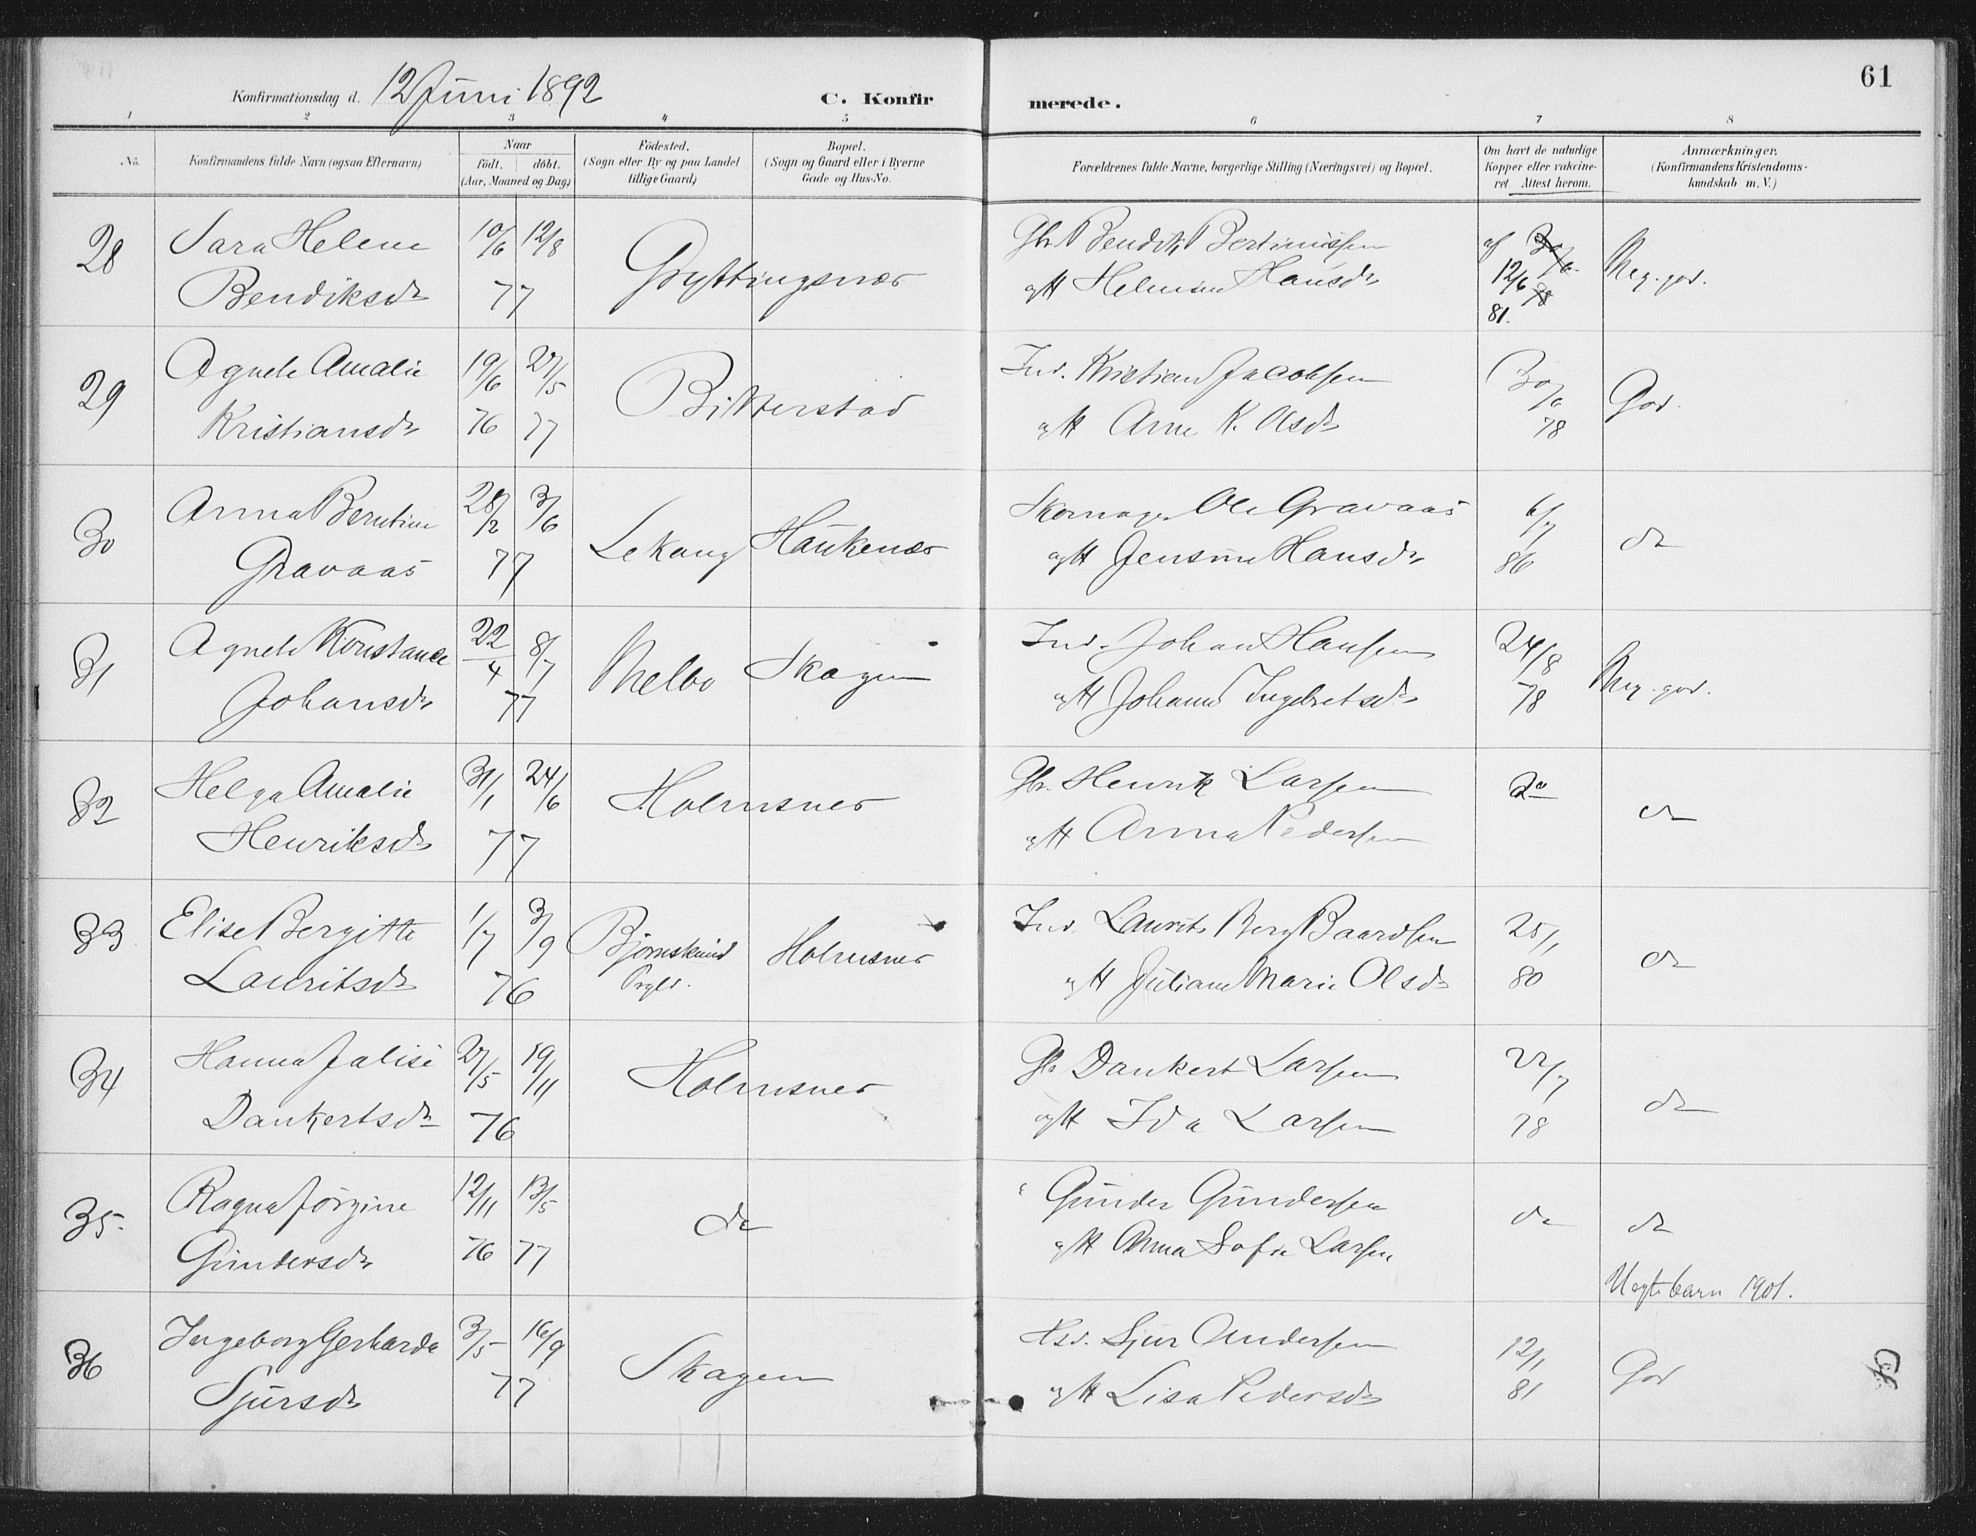 Konfirmationsdag d. 12 Juni 1892
C. Konfirmerede.
61
1 2 3 4 5 6 7 8
No.
Konfirmandens fulde Navn (ogsaa Efternavn)
Naar
födt. döbt.
(Aar, Maaned og Dag)
Födested.
(Sogn eller By og paa Landet
tillige Gaard)
Bopæl.
(Sogn og Gaard eller i Byerne
Gade og Hus-No.
Forældrenes fulde Navne, borgerlige Stilling (Næringsvei) og Bopæl.
Om havt de naturlige
Kopper eller vakcine-
ret Attest herom.
Anmærkninger.
(Konfirmandens Kristendoms-
kundskab m. V.)
28 Sara Helene 10/6 12/8 Gryttingsnæs Gbr. Bendik Bertinussen af 30/6 Meg. god.
Bendiksdr 77 Helmine Hansdr 12/6 78
81.
29 Agnete Amalie 19/6 27/5 Bitterstad Ind. Kristian Jacobsen 30/6 God.
Kristiansdr 76 77 Ane K. Olsdr 78
30 Anna Berntine 28/2 3/6 Lekang Haukenæs Skomager Ole Gravaas 6/7 do
Gravaas 77 Jensine Hansdr 86
31 Agnete Konstance 22/4 8/7 Melbo Skagen Ind. Johan Hansen 24/8 Meg. god.
Johansdr 77 Johanna Ingebretsdr 78
32 Helga Amalie 31/1 24/6 Holmsnes Gbr. Henrik Larsen do do
Henriksdr 77 Anna Pedersen
33 Elise Bergitte 1/7 3/9 Björnskind Holmsnes Ind. Laurits Berg Baardsen 25/1 do
Lauritsdr 76 Prgld. Juliane Marie Olsdr 80
34 Hanna Jalise 27/5 19/11 Holmsnes Gbr Dankert Larsen 22/7 do
Dankertsdr 76 Ida Larsen 78
35. Ragna Jörgine 12/11 13/5 do Gunder Gundersen do do
Gundersdr 76 77 Anna Sofie Larsen
Uegte barn 1901.
36 Ingeborg Gerharda 3/5 16/9 Skagen Hsd. Sjur Andersen 12/1 God
Sjursdr 77 Lisa Pedersdr 81